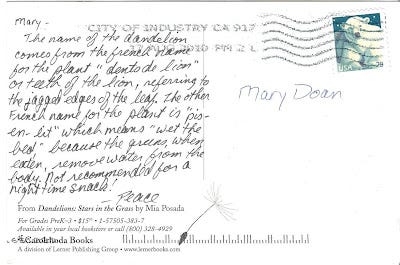 Mary -
The name of the dandelion
comes from the french name
for the plant "dents de lion"
or teeth of the lion, referring to
the jagged edges of the leaf. The other
French name for the plant is "pis-
en-lit" which means "wet the
bed" because the greens, when
eaten, remove water from the
body. Not recommended for a
night time snack!
- Peace
CITY OF INDUSTRY CA 917
2010 PM 2 L
USA
Mary Doan
From Dandelions: Stars in the Grass by Mia Posada
For Grades PreK-3 • $15⁹⁵ • 1-57505-383-7
Available in your local bookstore or call (800) 328-4929
Carolrhoda Books
A division of Lerner Publishing Group • www.lernerbooks.com